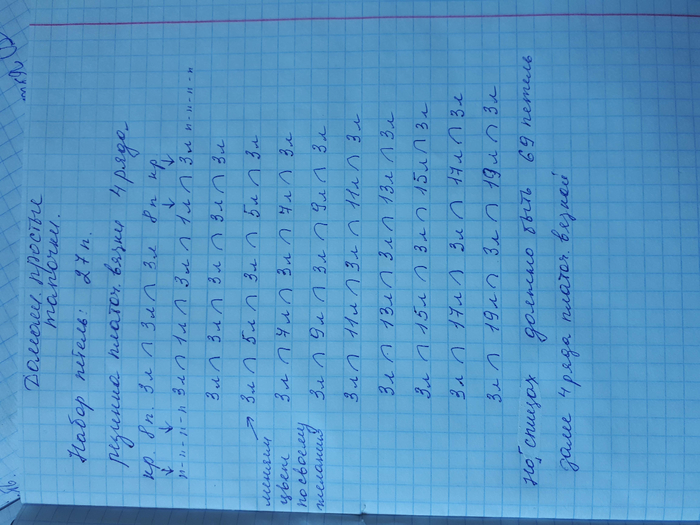 Домошн. простые
тапочки.
Набор петель: 27 п.
Резинка платоч. вязки 4 ряда
кр. 8п. 3л ∩ 3л ∩ 3л 8п кр
↓ ↓ ↓ ↓
п-п-п-п 3л ∩ 1л ∩ 3л ∩ 1л ∩ 3л п-п-п-п
3л ∩ 3л ∩ 3л ∩ 3л ∩ 3л
→ 3л ∩ 5л ∩ 3л ∩ 5л ∩ 3л
меняем
цвет
по своему
желанию
3л ∩ 7л ∩ 3л ∩ 7л ∩ 3л
3л ∩ 9л ∩ 3л ∩ 9л ∩ 3л
3л ∩ 11л ∩ 3л ∩ 11л ∩ 3л
3л ∩ 13л ∩ 3л ∩ 13л ∩ 3л
3л ∩ 15л ∩ 3л ∩ 15л ∩ 3л
3л ∩ 17л ∩ 3л ∩ 17л ∩ 3л
3л ∩ 19л ∩ 3л ∩ 19л ∩ 3л
На спицах должно быть 69 петель
далее 4 ряда платоч. вязкой